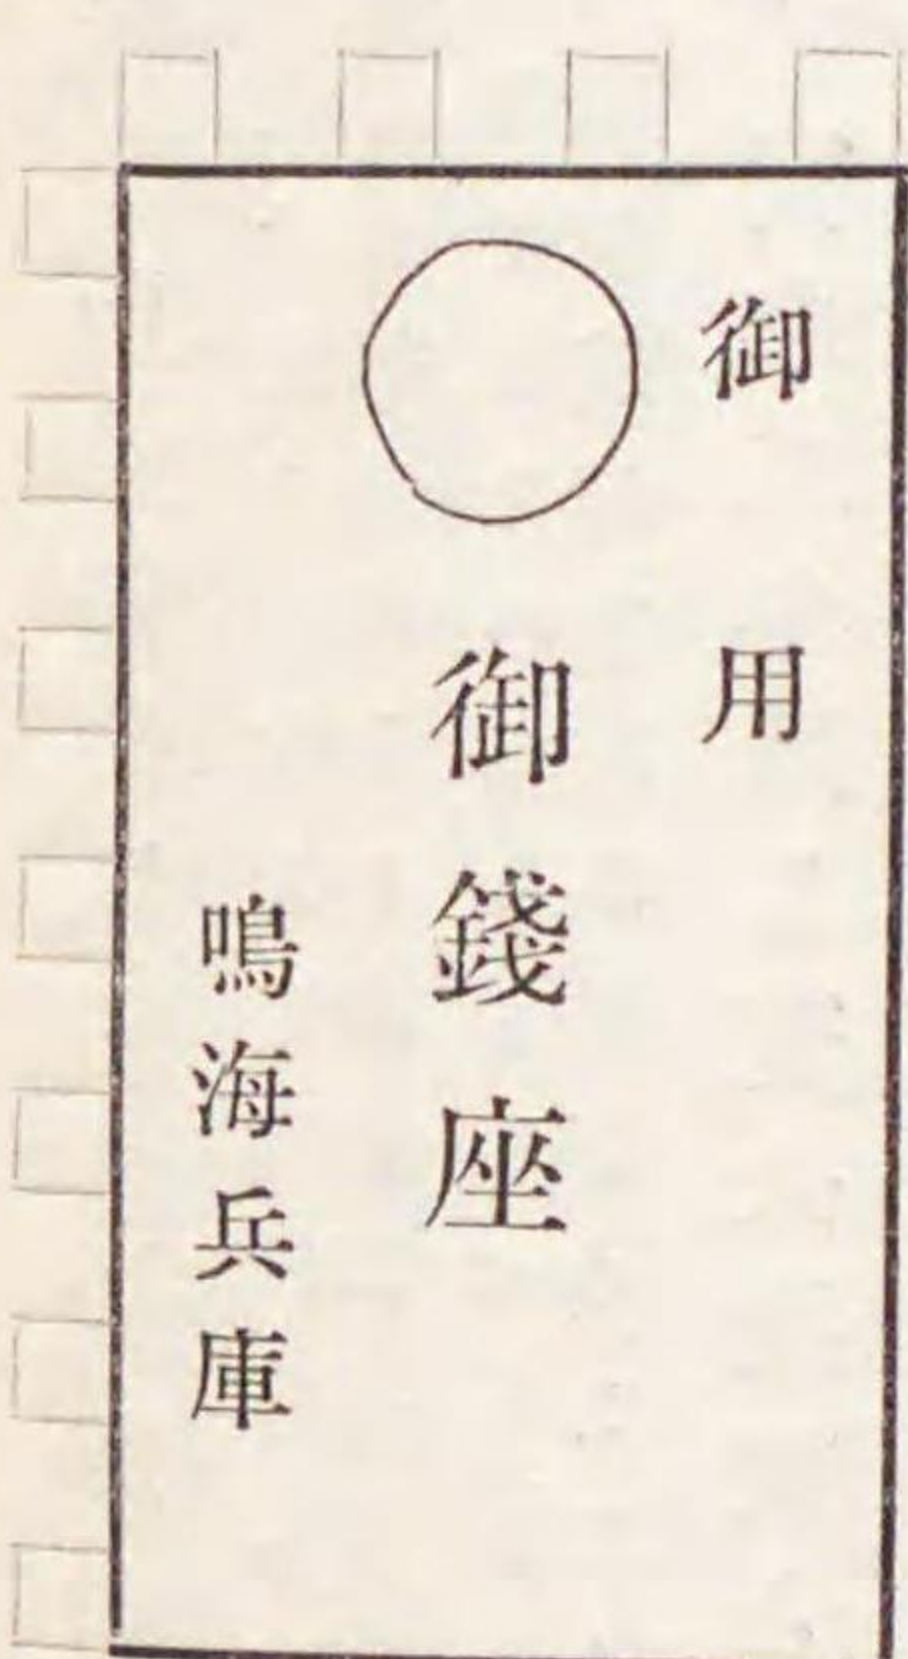 御用
御錢座
鳴海兵庫